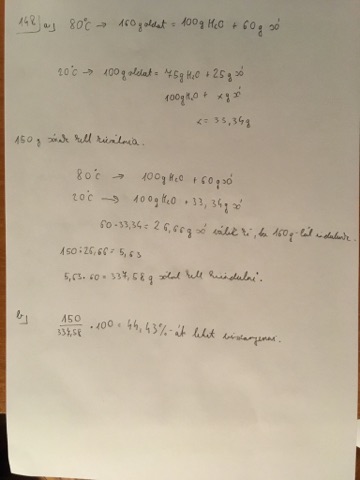 148. a) 80°C → 160 goldat = 100g H₂O + 60g só
20°C → 100 goldat = 75g H₂O + 25g só
100g H₂O + x g só
x = 33,34g
150 g sónak kell kiválnia.
80°C → 100g H₂O + 60g só
20°C → 100g H₂O + 33,34g só
60-33,34 = 26,66g só válik ki, ha 160g-ból indulunk.
150:26,66 = 5,63
5,63·60 = 337,58 g sóból kell kiindulni.
b) 150/337,58 · 100 = 44,43%-át lehet visszanyerni.